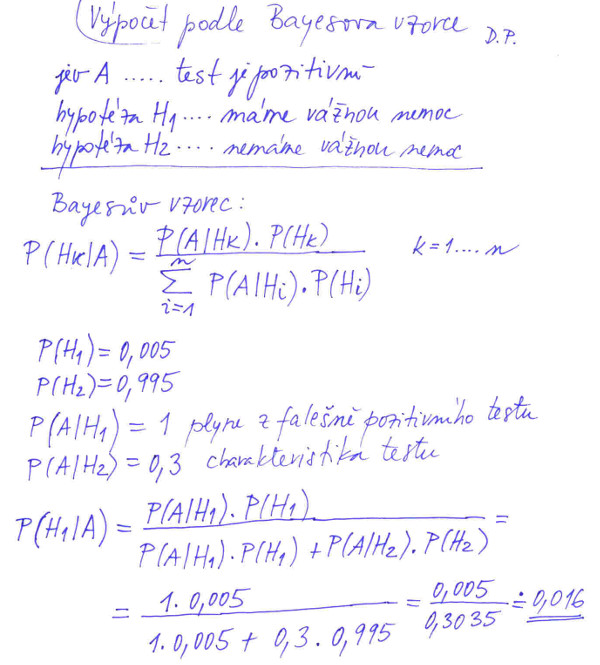 Výpočet podle Bayesova vzorce D.P.
jev A ..... test je pozitivní
hypotéza H₁ .... máme vážnou nemoc
hypotéza H₂ .... nemáme vážnou nemoc
Bayesův vzorec:
P(Hk|A) = P(A|Hk). P(Hk) / n∑i=1 P(A|Hi).P(Hi) k=1....n
P(H₁)=0,005
P(H₂)=0,995
P(A|H₁) = 1 plyne z falešně pozitivního testu
P(A|H₂) = 0,3 charakteristika testu
P(H₁|A) = P(A|H₁). P(H₁) / P(A|H₁).P(H₁) + P(A|H₂). P(H₂) =
= 1. 0,005 / 1.0,005 + 0,3. 0,995 = 0,005 / 0,3035 ≐ 0,016